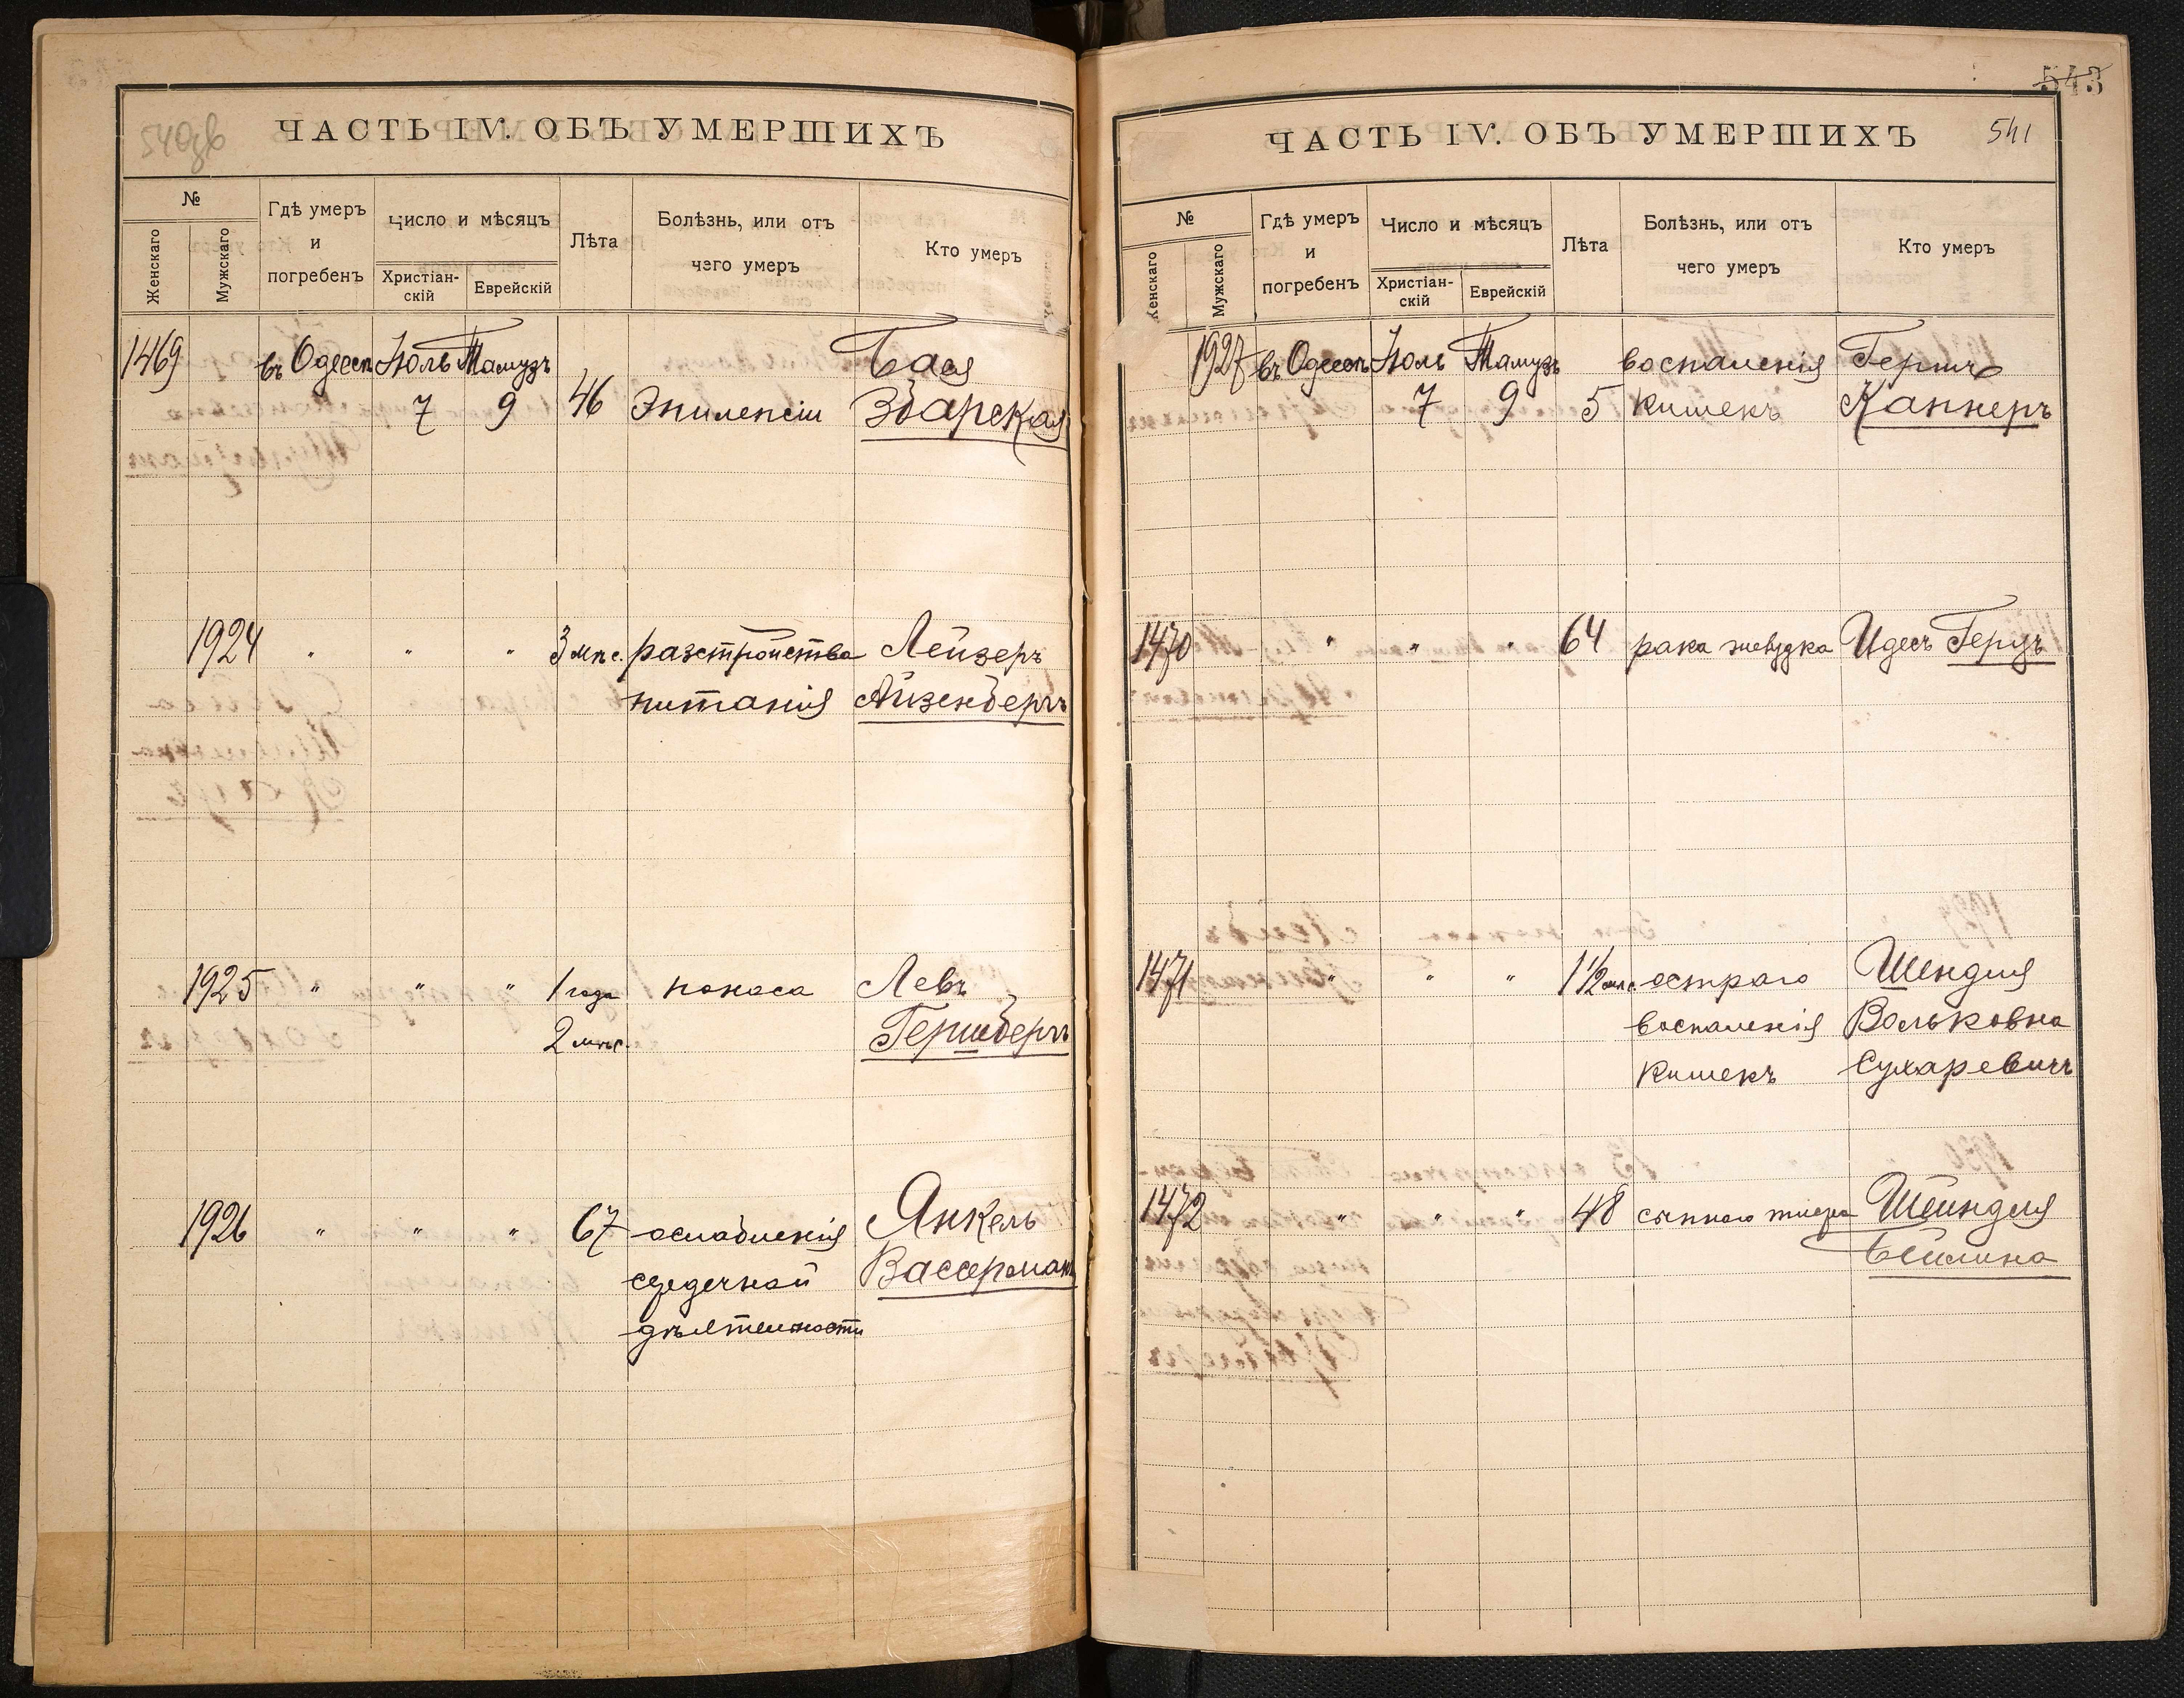 540 об
ЧАСТЬ IV. ОБЪ УМЕРШИХЪ
№
Женскаго
Мужскаго
Гдѣ умеръ
и
погребенъ
Число и мѣсяцъ
Христіан-
скій
Еврейскій
Лѣта
Болѣзнь, или отъ
чего умеръ
Кто умеръ
1469 въ Одессѣ Іюль Тамузъ Бася
7 9 46 Эпилепсіи Збарская
1924 " " " 3 мѣс. разстройства Лейзеръ
питанія Айзенбергъ
1925 " " " 1 года поноса Левъ
2 мѣс. Гершбергъ
1926 " " " 67 ослабленія Янкель
сердечной Вассерманъ
дѣятельности
543
ЧАСТЬ IV. ОБЪ УМЕРШИХЪ
541
№
Женскаго
Мужскаго
Гдѣ умеръ
и
погребенъ
Число и мѣсяцъ
Христіан-
скій
Еврейскій
Лѣта
Болѣзнь, или отъ
чего умеръ
Кто умеръ
1927 въ Одессѣ Іюль Тамузъ воспаленія Гершъ
7 9 5 кишекъ Каннеръ
1470 " " " 64 рака желудка Идесъ Герцъ
1471 " " " 1 1/2 мѣс. остраго Шендля
воспаленія Вольковна
кишекъ Сухаревичъ
1472 " " " 48 сыпного тифа Шейндля
Бейлина